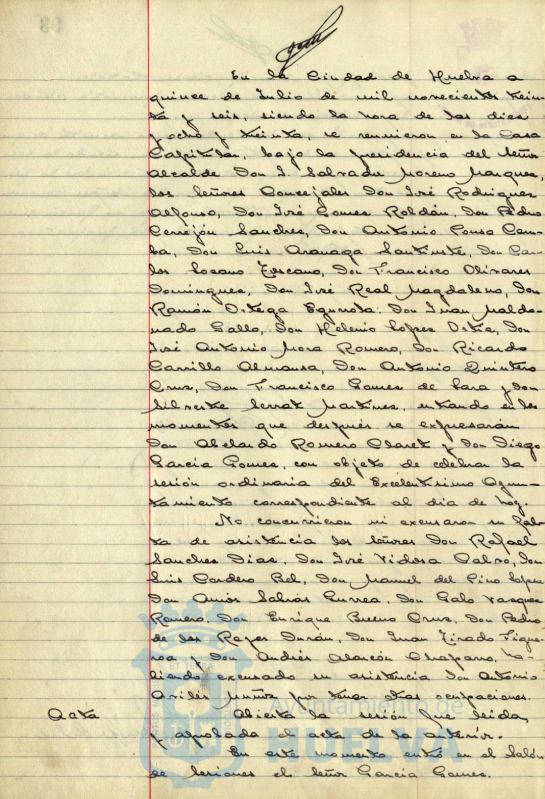 En la Ciudad de Huelva a
quince de Julio de mil novecientos trein-
ta y seis, siendo la hora de las dies
y ocho y treinta, se reunieron en la Casa
Capitular, bajo la presidencia del Señor
Alcalde Don J. Salvador Moreno Marquez,
los Señores Concejales Don José Rodriguez
Alfonso, Don José Gomez Roldán, Don Pedro
Cerrejón Sanchez, Don Antonio Pousa Cam-
ba, Don Luis Aranaga Santiste, Don Car-
los Lozano Toscano, Don Francisco Olivares
Dominguez, Don José Real Magdaleno, Don
Ramón Ortega Eguerola, Don Juan Maldo-
nado Gallo, Don Helenio Lopez Ortiz, Don
José Antonio Mora Romero, Don Ricardo
Carrillo Almansa, Don Antonio Quintero
Cruz, Don Francisco Gomez de Lara y Don
Silvestre Serrat Martinez, entrando en los
momentos que después se expresarán
Don Abelardo Romero Claret y Don Diego
Garcia Gomez, con objeto de celebrar la
sesión ordinaria del Excelentisimo Ayun-
tamiento correspondiente al dia de hoy.
No concurrieron ni excusaron su fal-
ta de asistencia los señores Don Rafael
Sanchez Dias, Don José Vidosa Calvo, Don
Luis Cordero Bel, Don Manuel del Pino Lopez
Don Amós Sabrás Gurrea, Don Galo Vazquez
Romero, Don Enrique Bueno Cruz, Don Pedro
de los Reyes Durán, Don Juan Tirado Figue-
roa y Don Andrés Alarcón Chaparro, ha-
biendo excusado su asistencia Don Antonio
Muñiz por tener otras ocupaciones.
Acta Abierta la sesión fue leida
y aprobada el acta de la anterior.
En este momento entró en el Salón
de Sesiones el Señor Garcia Gomez.
Ayuntamiento de
HUELVA